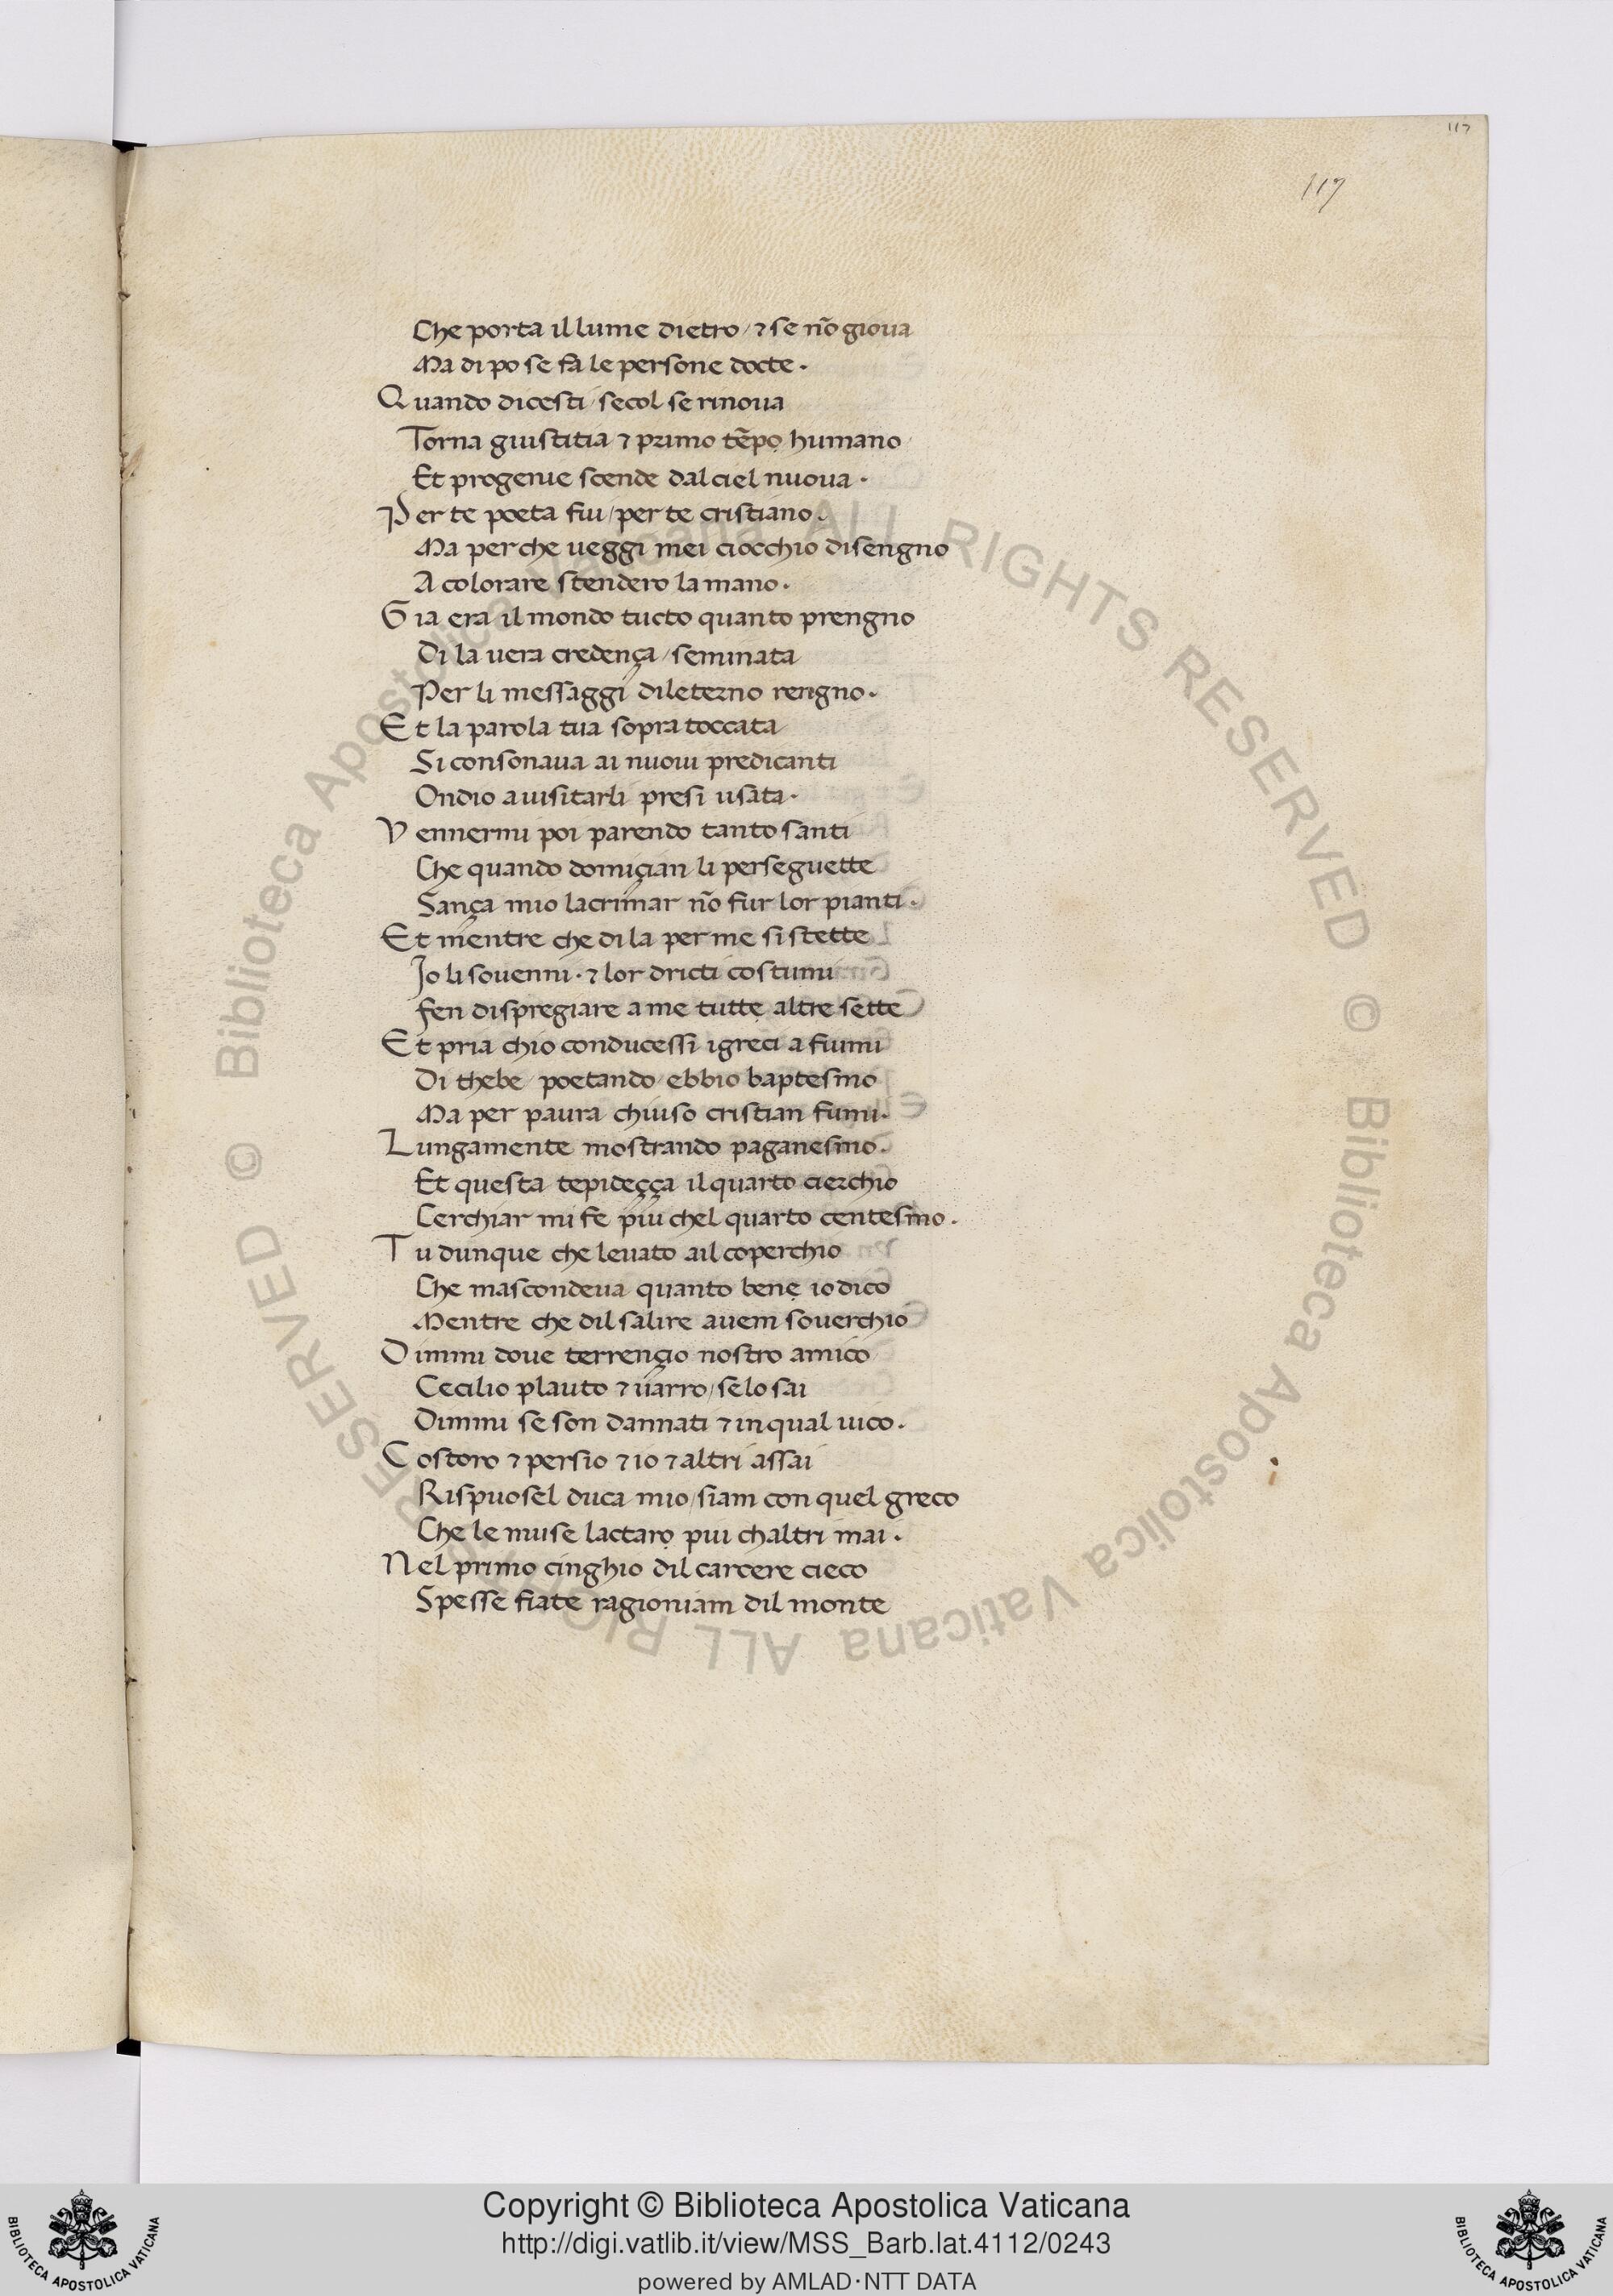 117
117
Che porta il lume dietro / ⁊ se nõ gioua
Ma di po se fa le persone docte ·
Quando dicesti / secol se rinoua
Torna giustitia ⁊ primo tẽpọ humano
Et progenie scende dal ciel nuoua ·
Per te poeta fui / per te cristiano ·
Ma perche ueggi mei ciocchio disengno
A colorare stendero la mano ·
Gia era il mondo tucto quanto prengno
Di la uera credença / seminata
Per li messaggi diletterno rengno ·
Et la parola tua sopra toccata
Si consonaua ai nuoui predicanti
Ondio a uisitarli presi usata ·
Vennermi poi parendo tanto santi
Che quando domiçian li perseguette
Sança mio lacrimar nõ fur lor pianti ·
Et mentre che di la per me si stette
Jo li souenni · ⁊ lor dricti costumi
fen dispregiare a me tuttẹ altre sette
Et pria chio conducessi i greci a fiumi
Di thebe / poetando / ebbio baptesmo
Ma per paura chiuso cristian fumi ·
Lungamente mostrando paganesmo ·
Et questa tepideçça il quarto cierchio
Cerchiar mi fe piu chel quarto centesmo ·
Tu dunque che leuato ail coperchio
Che mascondeua quanto benẹ io dico
Mentre che dil salire auem souerchio
Dimmi doue terrençio nostro amico
Cecilio plauto ⁊ uarro / se lo sai
Dimmi se son dannati ⁊ in qual uico ·
Costoro ⁊ persio ⁊ io ⁊ altri assai
Rispuosel duca mio / siam con quel greco
Che le muse lactarọ piu chaltri mai ·
Nel primo cinghio dil carcere cieco
Spesse fiate ragioniam dil monte
© Biblioteca Apostolica Vaticana ALL RIGHTS RESERVED © Biblioteca Apostolica Vaticana ALL RIGHTS RESERVED
BIBLIOTECA APOSTOLICA VATICANA
Copyright © Biblioteca Apostolica Vaticana
http://digi.vatlib.it/view/MSS_Barb.lat.4112/0243
powered by AMLAD·NTT DATA
BIBLIOTECA APOSTOLICA VATICANA